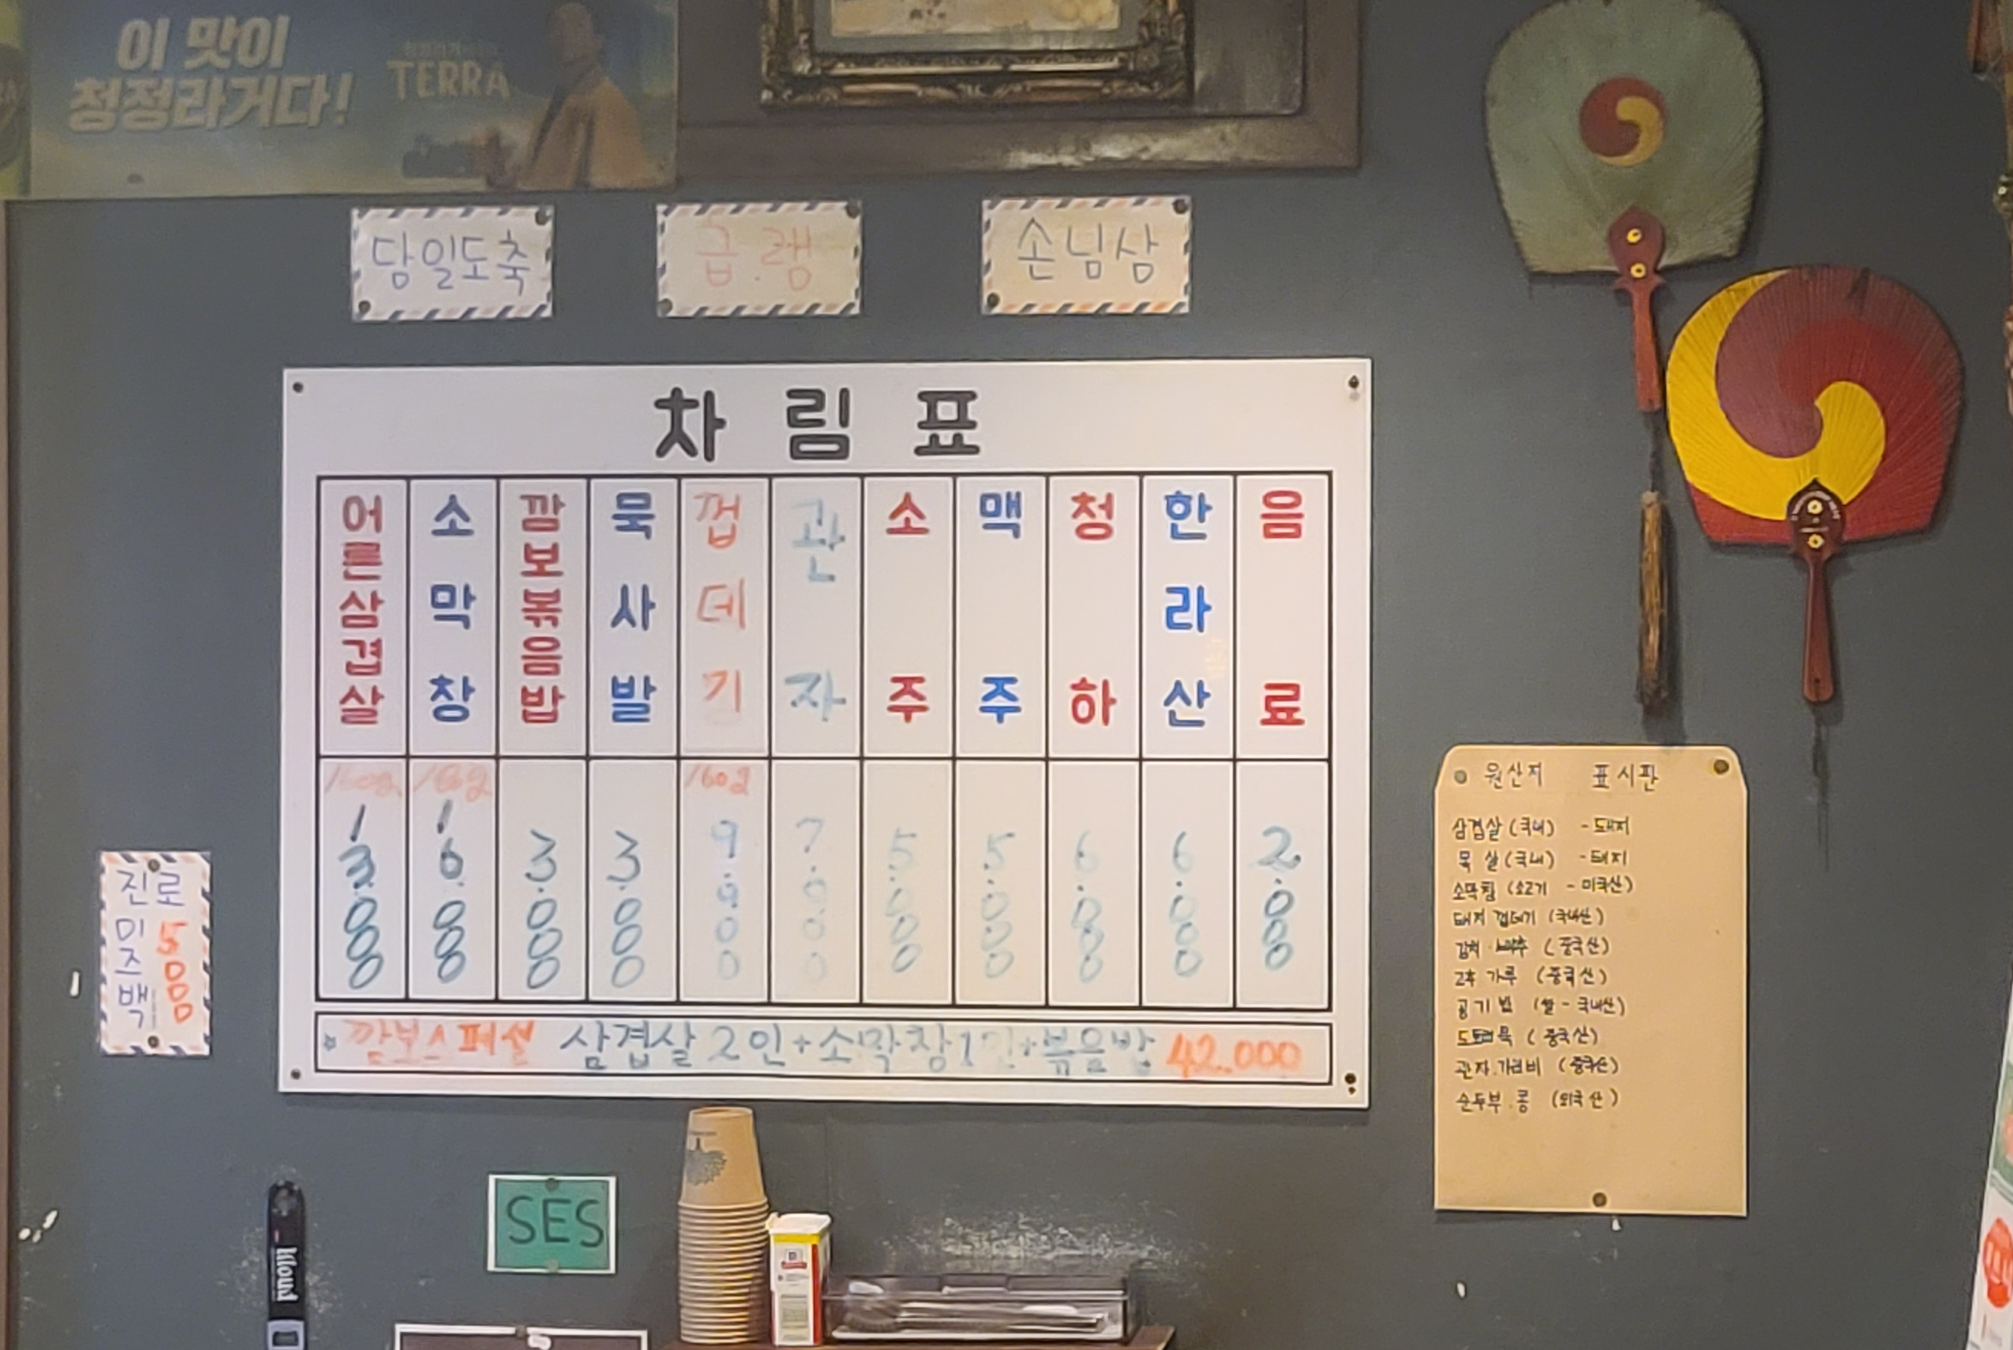 이 맛이
청정라거다!
TERRA
당일도축
급.랭
손님상
차림표
어른삼겹살 160g 13.000
소막창 160g 16.000
깜보볶음밥 3.000
묵사발 3.000
껍데기 160g 9.900
관자 7.000
소주 5.000
맥주 5.000
청하 6.000
한라산 6.000
음료 2.000
깜보스페셜 삼겹살 2인+소막창1인+볶음밥 42.000
진로
믹스백 5000
원산지 표시판
삼겹살 (국내) - 돼지
목살 (국내) - 돼지
소막창 (소고기 - 미국산)
돼지 껍데기 (국내산)
김치 (중국산)
고추가루 (중국산)
공기밥 (쌀 - 국내산)
도토리묵 (중국산)
관자.가리비 (중국산)
순두부.콩 (외국산)
SES
Kloud